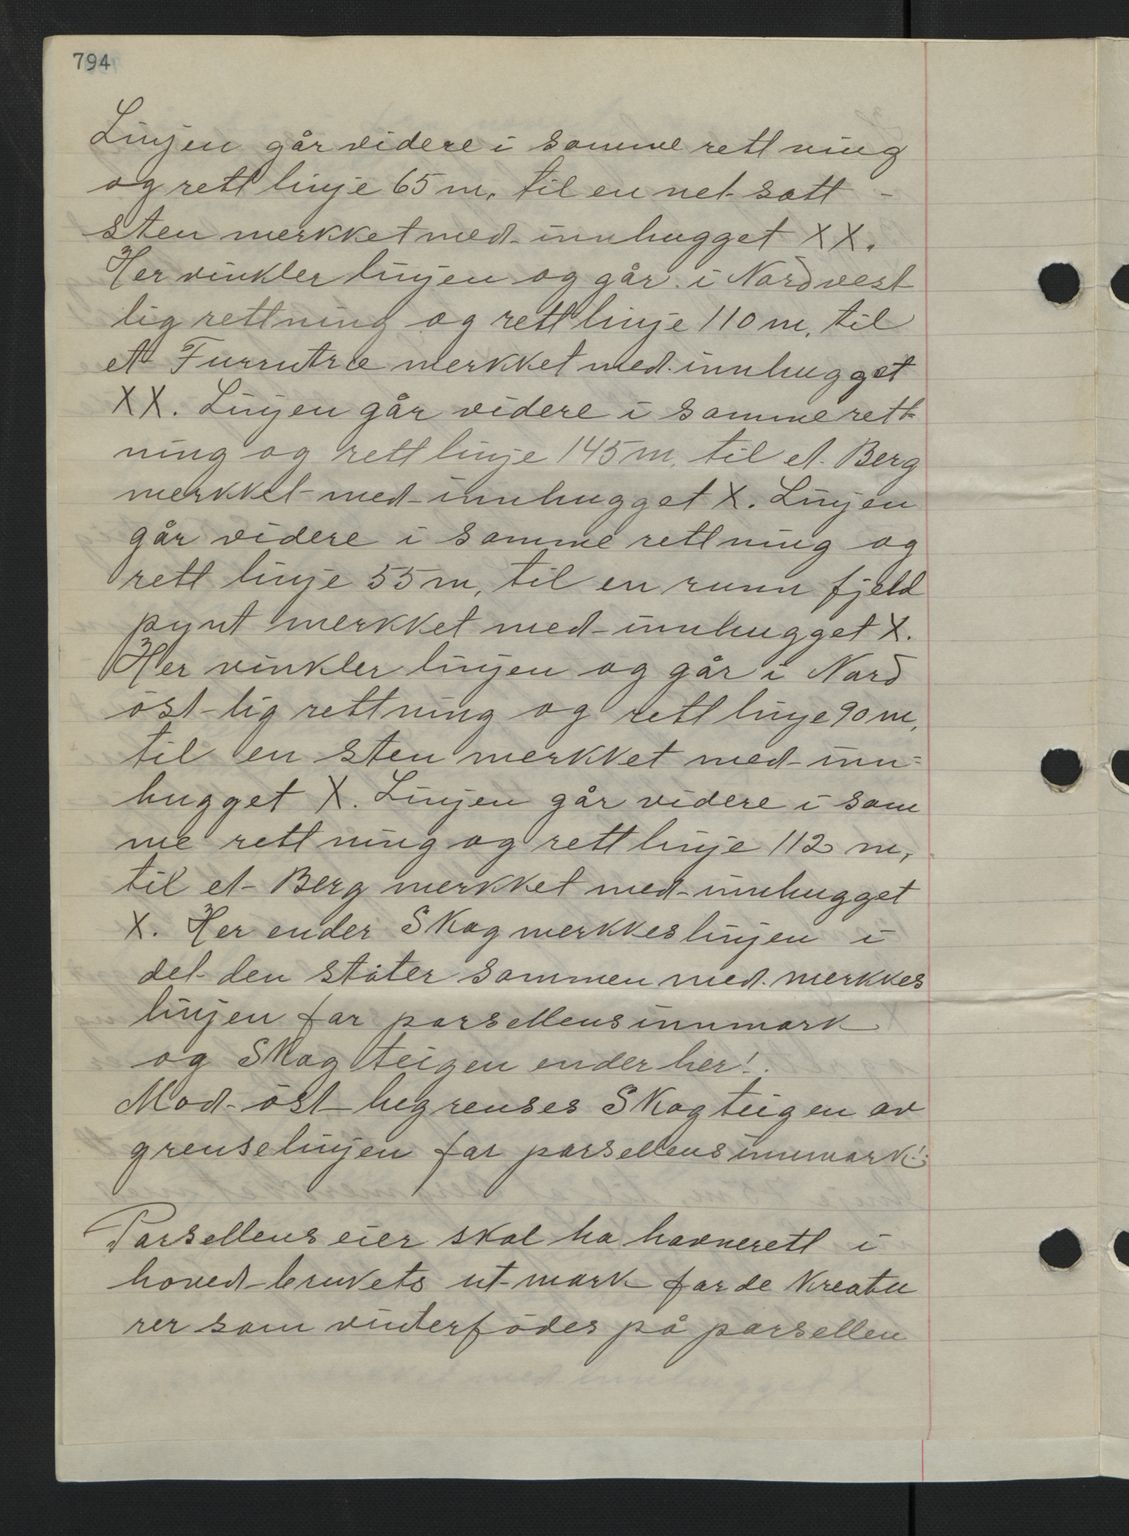 794
Linjen går videre i somme rettning
og rett linje 65 m, til en net satt -
sten merkket med innhugget XX.
Her vinkler linjen og går i Nordvest
lig rettning og rett linje 110 m, til
et Furrutræ merkket med innhugget
XX. Linjen går videre i somme rett-
ning og rett linje 145 m, til et Berg
merkket med innhugget X. Linjen
går videre i somme rettning og
rett linje 55 m, til en runn fjeld
pynt merkket med innhugget X.
Her vinkler linjen og går i Nord
östlig rettning og rett linje 90 m,
til en sten merkket med inn=
hugget X. Linjen går videre i som
me rettning og rett linje 112 m,
til et Berg merkket med innhugget
X. Her ender Skogmerkkeslinjen i
det den stöter sommen med merkkes
linjen for parsellens innmark
og Skog teigen ender her!.
Mod öst begrenses Skogteigen av
grenselinjen for parsellens innmark!.
Parsellens eier skal ha havnerett i
hoved-brukets ut-mark for de kreatu
rer som vinterfödes på parsellen